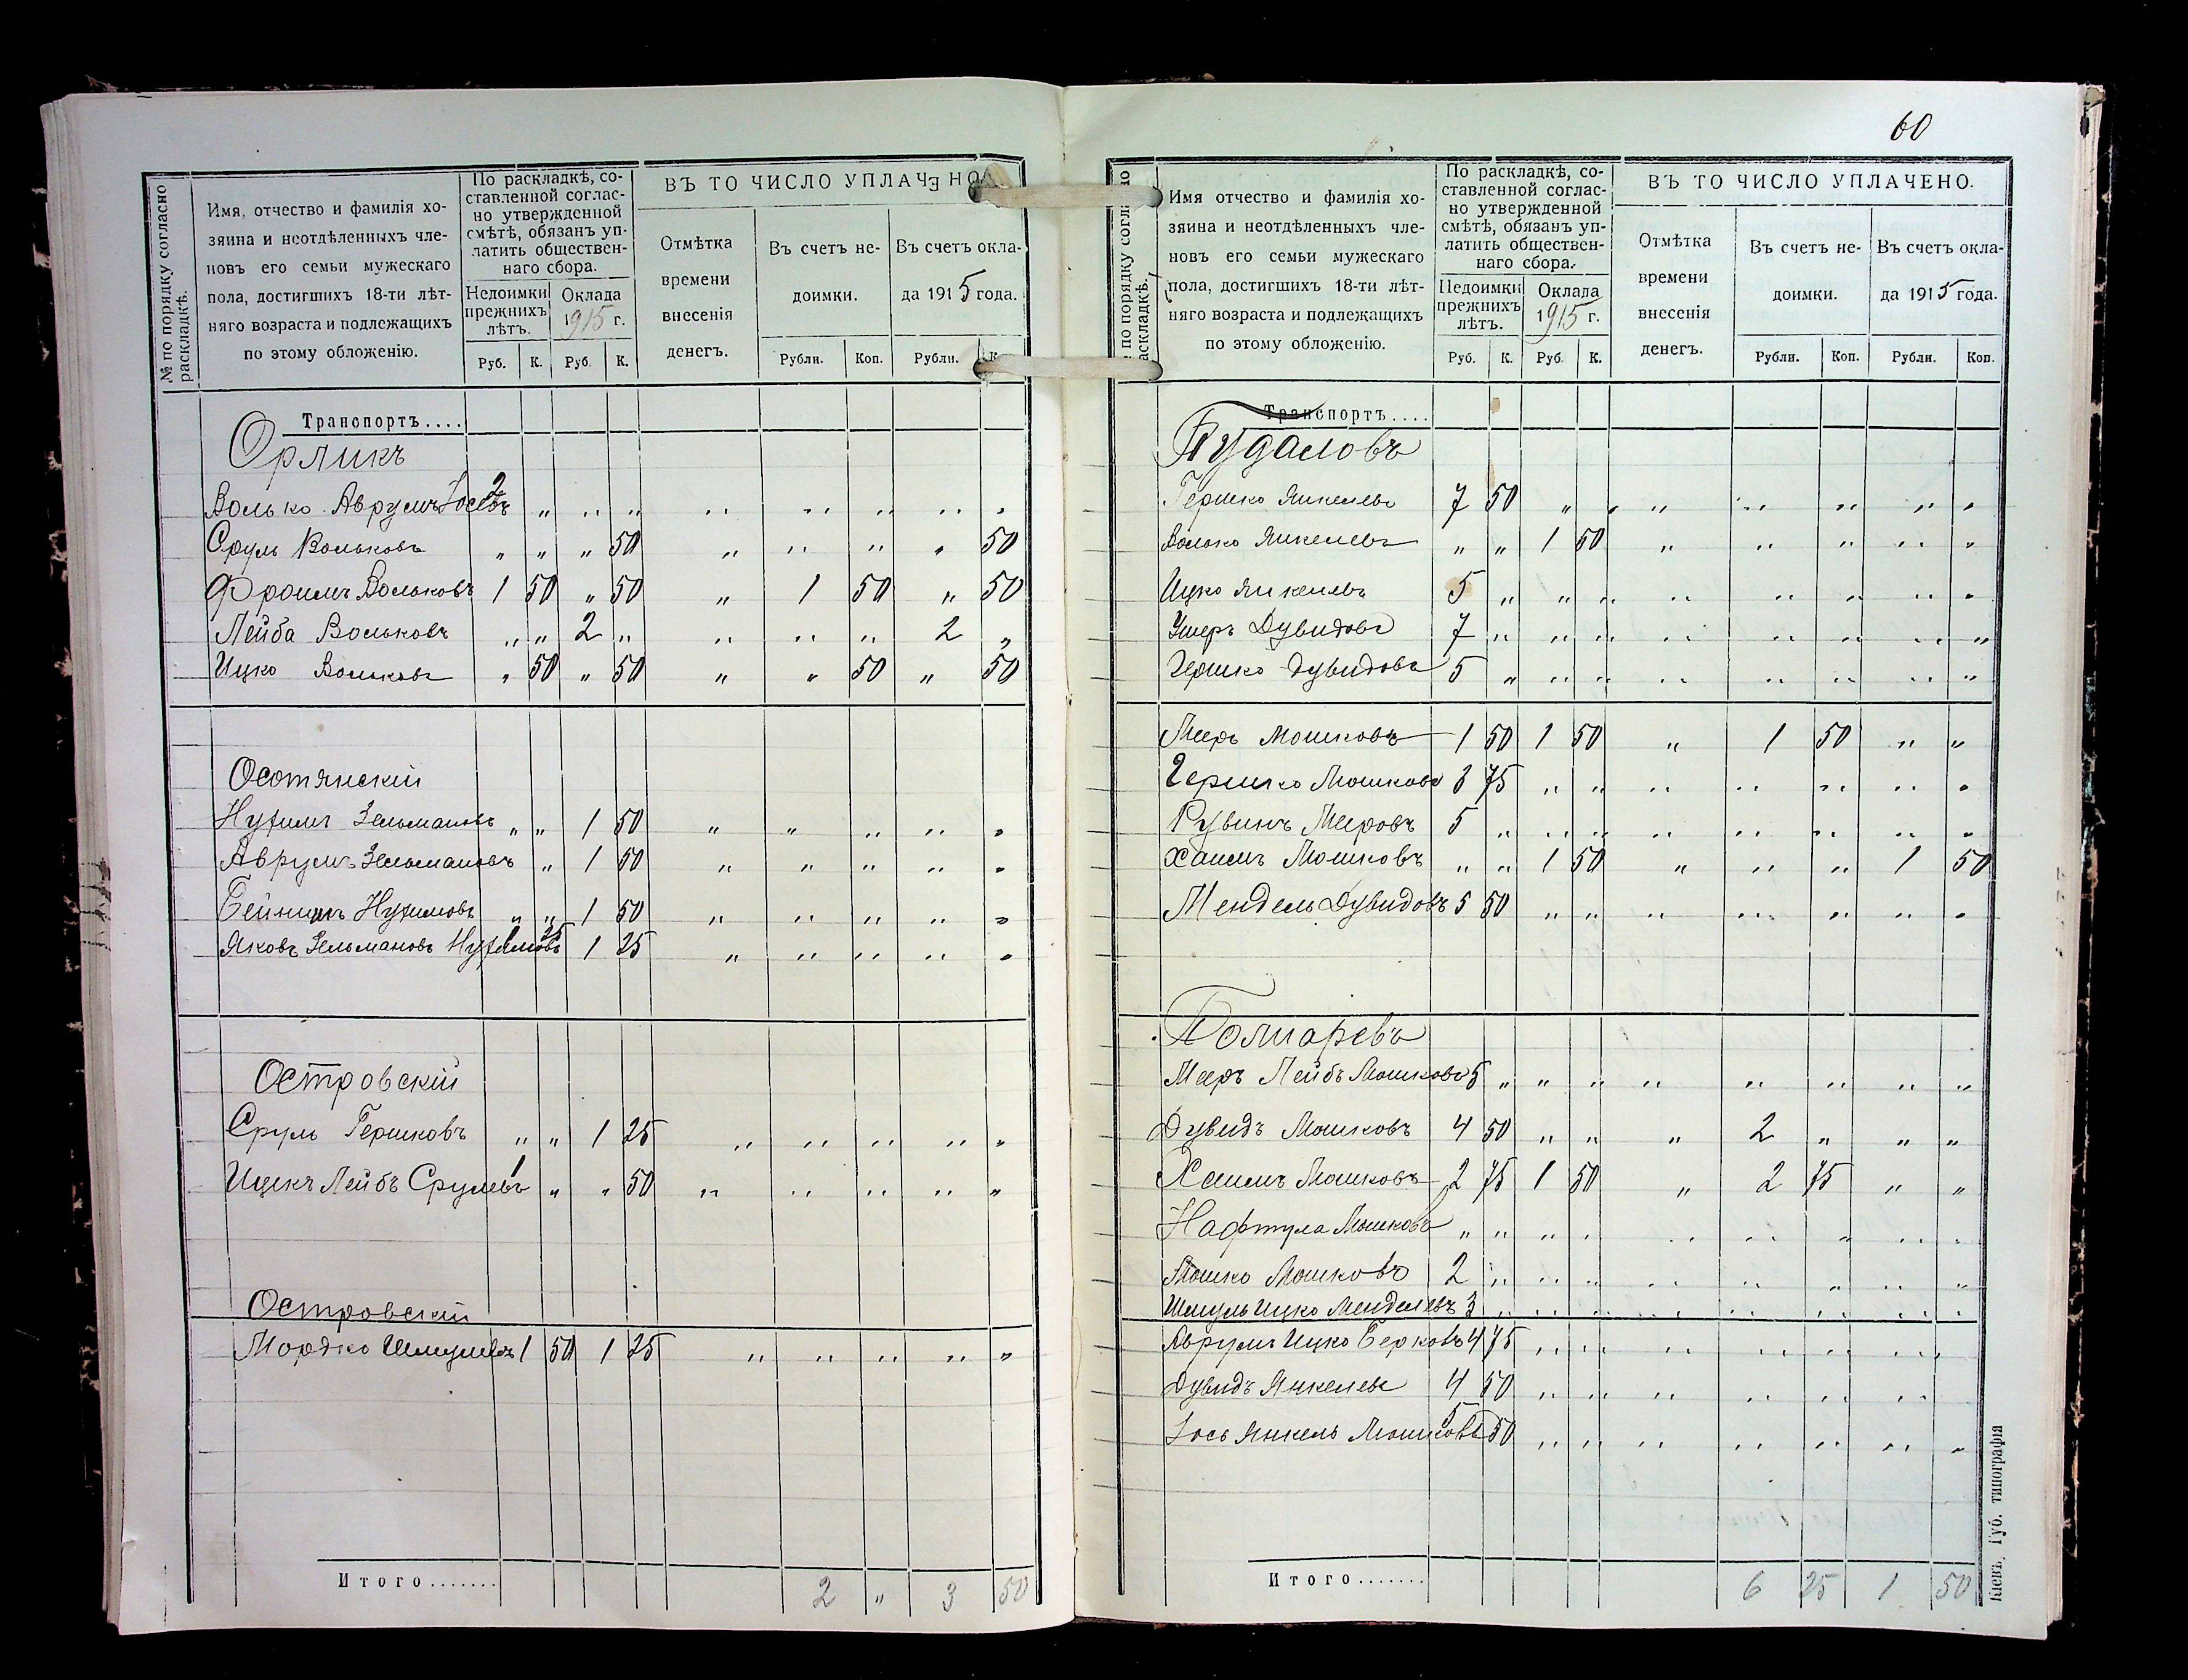 № по порядку согласно раскладкѣ.
Имя, отчество и фамилія хо-
зяина и неотдѣленныхъ чле-
новъ его семьи мужескаго
пола, достигшихъ 18-ти лѣт-
няго возраста и подлежащихъ
по этому обложенію.
По раскладкѣ, со-
ставленной соглас-
но утвержденной
смѣтѣ, обязанъ уп-
латить обществен-
наго сбора.
Недоимки прежнихъ лѣтъ.
Оклада 1915 г.
Руб. К. Руб. К.
ВЪ ТО ЧИСЛО УПЛАЧЕНО
Отмѣтка
времени
внесенія
денегъ.
Въ счетъ не-
доимки.
Въ счетъ окла-
да 1915 года.
Рубли. Коп. Рубли. К
Транспортъ....
Орликъ
Волько Аврумъ Іосевъ 2 „ „ „ „ „ „ „ „
Сруль Вольковъ „ „ „ 50 „ „ „ „ 50
Фроимъ Вольковъ 1 50 „ 50 „ 1 50 „ 50
Лейба Вольковъ „ „ 2 „ „ „ „ 2 „
Ицко Вольковъ „ 50 „ 50 „ „ 50 „ 50
Осотянскій
Нухимъ Зельмановъ „ „ 1 50 „ „ „ „ „
Аврумъ Зельмановъ „ 1 50 „ „ „ „ „
Бейнишъ Нухимовъ „ „ 1 50 „ „ „ „ „
Яковъ Зельмановъ Нухимовъ 1 25 1 25 „ „ „ „ „
Островскій
Сруль Гершковъ „ „ 1 25 „ „ „ „ „
Ицекъ Лейбъ Срулевъ 1 „ „ 50 „ „ „ „ „
Островскій
Мордко Шмулевъ 1 50 1 25 „ „ „ „ „
Итого....... 2 „ 3 50
60
Имя отчество и фамилія хо-
зяина и неотдѣленныхъ чле-
новъ его семьи мужескаго
пола, достигшихъ 18-ти лѣт-
няго возраста и подлежащихъ
по этому обложенію.
По раскладкѣ, со-
ставленной соглас-
но утвержденной
смѣтѣ, обязанъ уп-
латить обществен-
наго сбора.
Недоимки прежнихъ лѣтъ.
Оклада 1915 г.
Руб. К. Руб. К.
ВЪ ТО ЧИСЛО УПЛАЧЕНО.
Отмѣтка
времени
внесенія
денегъ.
Въ счетъ не-
доимки.
Въ счетъ окла-
да 1915 года.
Рубли. Коп. Рубли. Коп.
Транспортъ....
Пудаловъ
Гершко Янкелевъ 7 50 „ „ „ „ „ „ „
Волько Янкелевъ „ „ 1 50 „ „ „ „ „
Ицко Янкелевъ 5 „ „ „ „ „ „ „ „
Ушеръ Дувидовъ 7 „ „ „ „ „ „ „ „
Гершко Дувидовъ 5 „ „ „ „ „ „ „ „
Мееръ Мошковъ 1 50 1 50 „ 1 50 „ „
Гершко Мошковъ 8 75 „ „ „ „ „ „ „
Рувинъ Мееровъ 5 „ „ „ „ „ „ „ „
Хаимъ Мошковъ „ „ 1 50 „ „ „ 1 50
Мендель Дувидовъ 5 50 „ „ „ „ „ „ „
Полиаревъ
Мееръ Лейбъ Мошковъ 5 „ „ „ „ „ „ „ „
Дувидъ Мошковъ 4 50 „ „ „ 2 „ „ „
Хаимъ Мошковъ 2 75 1 50 „ 2 75 „ „
Нафтула Мошковъ „ „ „ „ „ „ „ „ „
Мошко Мошковъ 2 „ „ „ „ „ „ „ „
Шмуль Ицко Менделевъ 3 „ „ „ „ „ „ „ „
Аврумъ Ицко Берковъ 4 75 „ „ „ „ „ „
Дувидъ Янкелевъ 4 50 „ „ „ „ „ „
Іось Янкель Мошковъ 5 50 „ „ „ „ „ „ „
Итого....... 6 25 1 50
Кіевъ, Губ. типографія